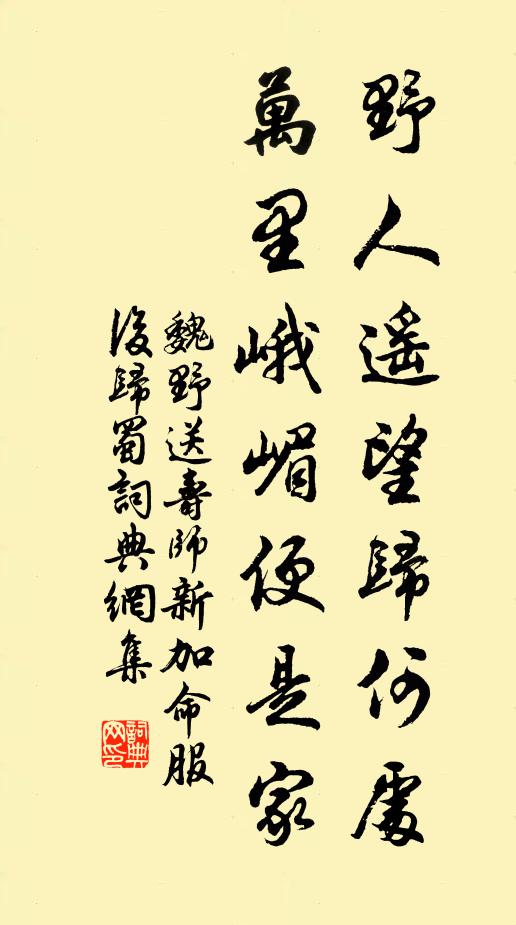 野人遥望歸何處
萬里峨嵋便是家
魏野送壽師新加命服
後歸蜀詞典網集
詞典網印